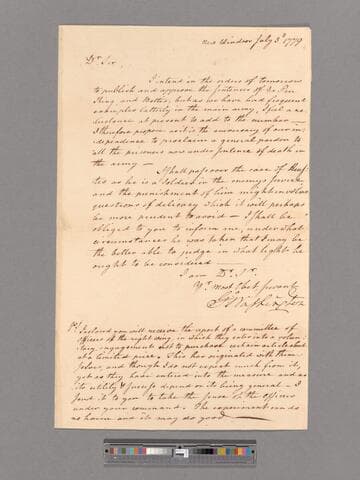 New Windsor July 3d 1779
Dr Sir,
I intend in the orders of tomorrow
to publish and approve the sentences of
King and but as we have had frequent
examples latterly in the main army, I feel a re-
luctance at present to add to the number —
I therefore propose as it is the anniversary of our in-
dependence to proclaim a general pardon to
all the prisoners now under sentence of death in
the army —
I shall pass over the case of
as he is a soldier in the enemys service
and the punishment of him might involve
questions of delicacy which it will perhaps
be more prudent to avoid — I shall be
obliged to you to inform me, under what
circumstances he was taken that I may be
the better able to judge in what light he
ought to be considered
I am Dr Sir
Yr most Obet Servant
Go Washington
PS Inclosed you will receive the report of a committee of
officers of the right wing, in which they enter into a volun-
tary engagement not to purchase certain articles but
at a limited price. This has originated with them-
selves, and though I do not expect much from it,
yet as they have entered into the measure and as
its utility & success depend on its being general — I
send it to you to take the sense of the officers
under your command. The experiment can do
no harm and it may do good —